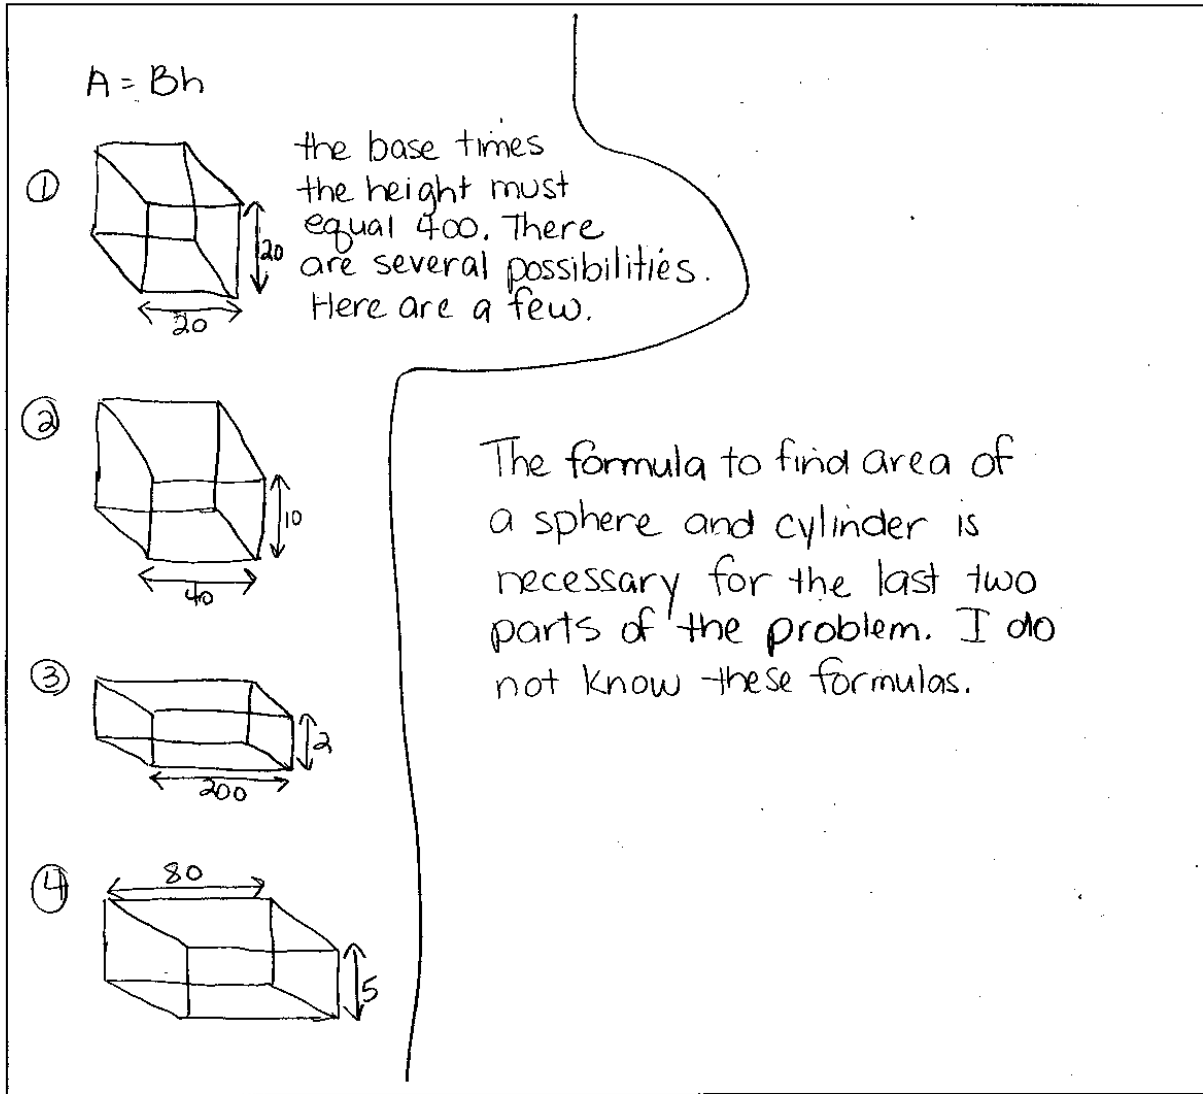 A = Bh
①
the base times
the height must
equal 400. There
are several possibilities.
Here are a few.
20
20
②
10
40
③
2
200
④
80
5
The formula to find area of
a sphere and cylinder is
necessary for the last two
parts of the problem. I do
not know these formulas.